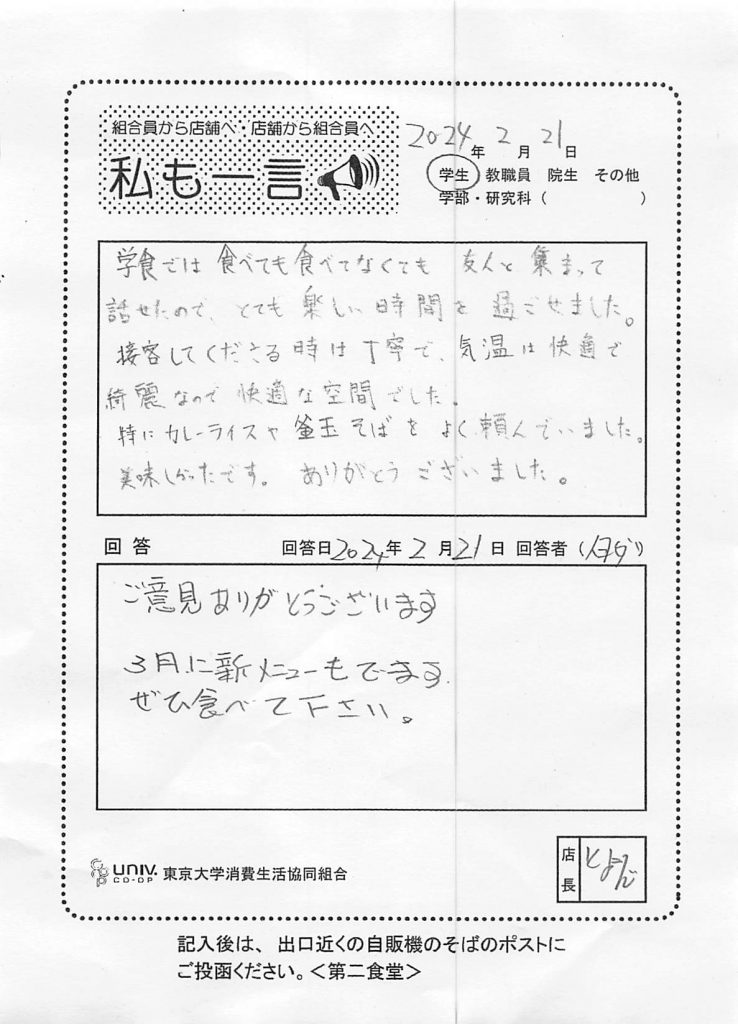 組合員から店舗へ・店舗から組合員へ
私も一言
2024年 2月 21日
学生 教職員 院生 その他
学部・研究科（ ）
学食では食べても食べてなくても 友人と 集まって
話せたので、とても 楽しい 時間を 過ごせました。
接客してくださる 時は 丁寧で、気温は 快適で
綺麗なので 快適な空間でした。
特に カレーライスや 釜玉そばを よく頼んでいました。
美味しかったです。 ありがとうございました。
回答 回答日2024年 2月21日 回答者（ ）
ご意見ありがとうございます
3月に新メニューもでます
ぜひ食べて下さい。
UNIV. CO-OP 東京大学消費生活協同組合
店長
記入後は、出口近くの自販機のそばのポストに
ご投函ください。＜第二食堂＞